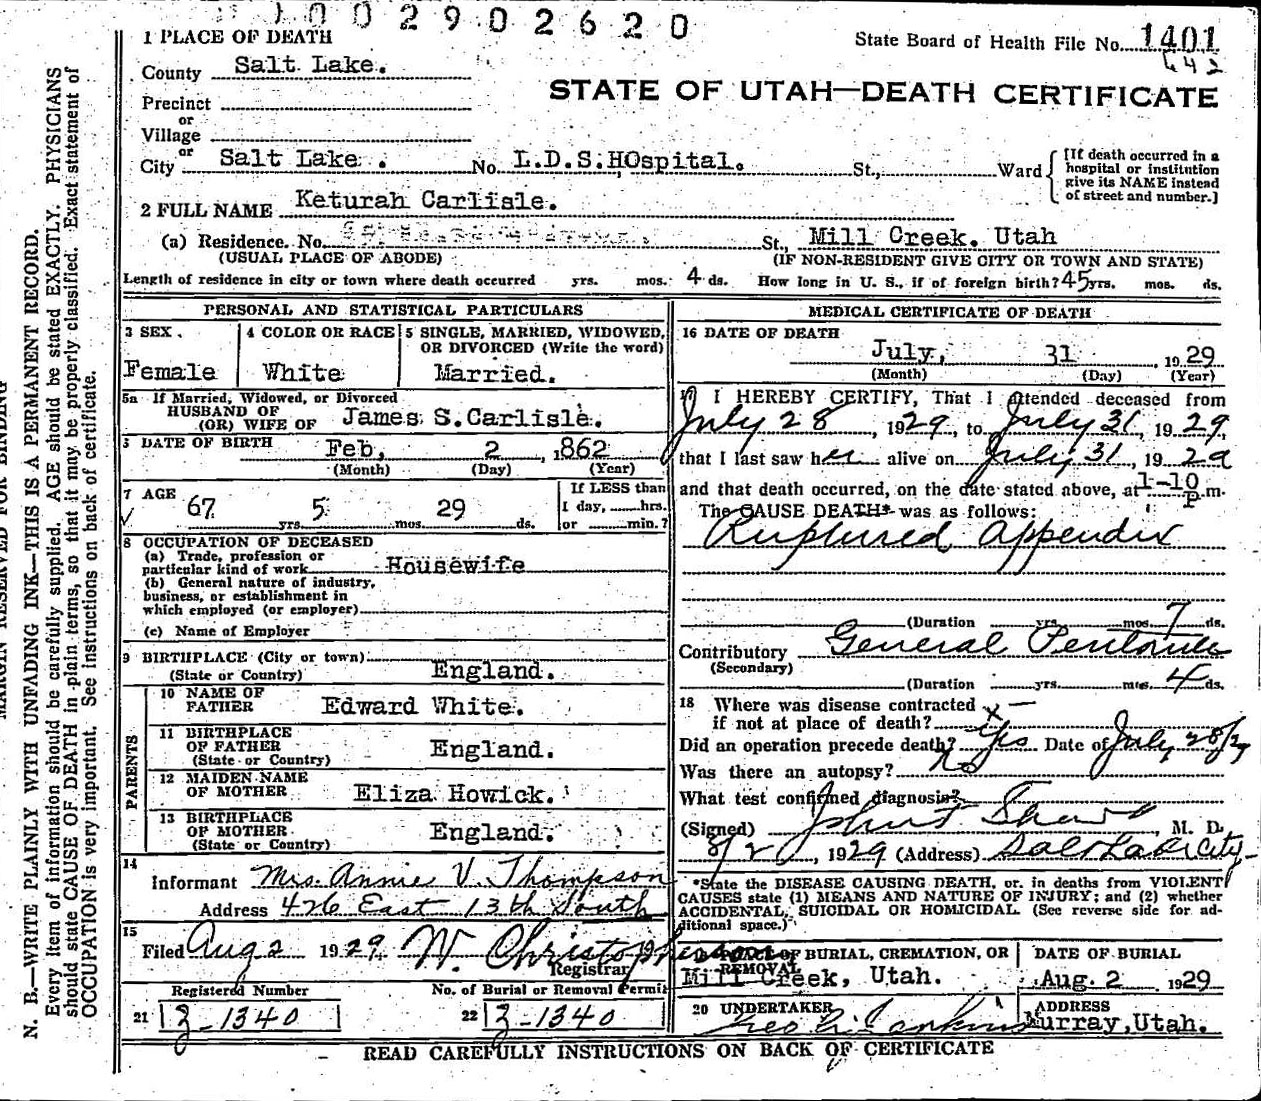 0 0 2 9 0 2 6 2 0
1 PLACE OF DEATH
State Board of Health File No. 1401
442
County Salt Lake.
STATE OF UTAH—DEATH CERTIFICATE
Precinct
or
Village
or
City Salt Lake . No. L.D.S.HOspital. St., Ward
[If death occurred in a hospital or institution give its NAME instead of street and number.]
2 FULL NAME Keturah Carlisle.
(a) Residence. No. St., Mill Creek. Utah
(USUAL PLACE OF ABODE) (IF NON-RESIDENT GIVE CITY OR TOWN AND STATE)
Length of residence in city or town where death occurred yrs. mos. 4 ds. How long in U. S., if of foreign birth? 45 yrs. mos. ds.
PERSONAL AND STATISTICAL PARTICULARS
3 SEX. 4 COLOR OR RACE 5 SINGLE, MARRIED, WIDOWED, OR DIVORCED (Write the word)
Female White Married.
5a If Married, Widowed, or Divorced
HUSBAND OF
(OR) WIFE OF James S.Carlisle.
DATE OF BIRTH Feb, 2 , 1862
(Month) (Day) (Year)
7 AGE 67 yrs. 5 mos. 29 ds.
If LESS than 1 day, hrs. or min.?
8 OCCUPATION OF DECEASED
(a) Trade, profession or particular kind of work Housewife
(b) General nature of industry, business, or establishment in which employed (or employer)
(c) Name of Employer
9 BIRTHPLACE (City or town)
(State or Country) England.
PARENTS
10 NAME OF FATHER Edward White.
11 BIRTHPLACE OF FATHER (State or Country) England.
12 MAIDEN NAME OF MOTHER Eliza Howick.
13 BIRTHPLACE OF MOTHER (State or Country) England.
14
Informant Mrs. Annie V. Thompson
Address 426 East 13th South
15
Filed Aug 2 1929. W. Christopherson
Registrar
Registered Number No. of Burial or Removal Permit
21 3-1340 22 3-1340
MEDICAL CERTIFICATE OF DEATH
16 DATE OF DEATH
July, 31 , 1929
(Month) (Day) (Year)
17 I HEREBY CERTIFY, That I attended deceased from
July 28 , 1929, to July 31, 1929,
that I last saw her alive on July 31, 1929
and that death occurred, on the date stated above, at 1-10 P.m.
The CAUSE DEATH* was as follows:
Ruptured appendix
(Duration yrs. mos. 7 ds.
Contributory General Peritonitis
(Secondary)
(Duration yrs. mos. 4 ds.
18 Where was disease contracted
if not at place of death? x —
Did an operation precede death? Yes Date of July 28/29
Was there an autopsy? No
What test confirmed diagnosis?
(Signed) , M. D.
8/2 , 1929 (Address) Salt Lake City
*State the DISEASE CAUSING DEATH, or in deaths from VIOLENT
CAUSES state (1) MEANS AND NATURE OF INJURY; and (2) whether
ACCIDENTAL, SUICIDAL OR HOMICIDAL. (See reverse side for additional space.)
19 PLACE OF BURIAL, CREMATION, OR REMOVAL DATE OF BURIAL
Mill Creek, Utah. Aug. 2 1929
20 UNDERTAKER ADDRESS
Murray,Utah.
READ CAREFULLY INSTRUCTIONS ON BACK OF CERTIFICATE
MARGIN RESERVED FOR BINDING
N. B.—WRITE PLAINLY WITH UNFADING INK—THIS IS A PERMANENT RECORD.
Every item of information should be carefully supplied. AGE should be stated EXACTLY. PHYSICIANS
should state CAUSE OF DEATH in plain terms, so that it may be properly classified. Exact statement of
OCCUPATION is very important. See instructions on back of certificate.